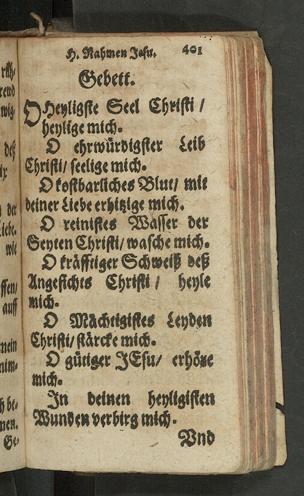 H. Nahmen Jesu. 401
Gebett.
O Heyligste Seel Christi /
heylige mich.
O ehrwürdigster Leib
Christi / seelige mich.
O kostbarliches Blut / mit
deiner Liebe erhitzige mich.
O reinistes Wasser der
Seyten Christi / wasche mich.
O kräfftiger Schweiß deß
Angesichts Christi / heyle
mich.
O Mächtigistes Leyden
Christi / stärcke mich.
O gütiger JEsu / erhöre
mich.
In deinen heyligisten
Wunden verbirg mich.
Vnd